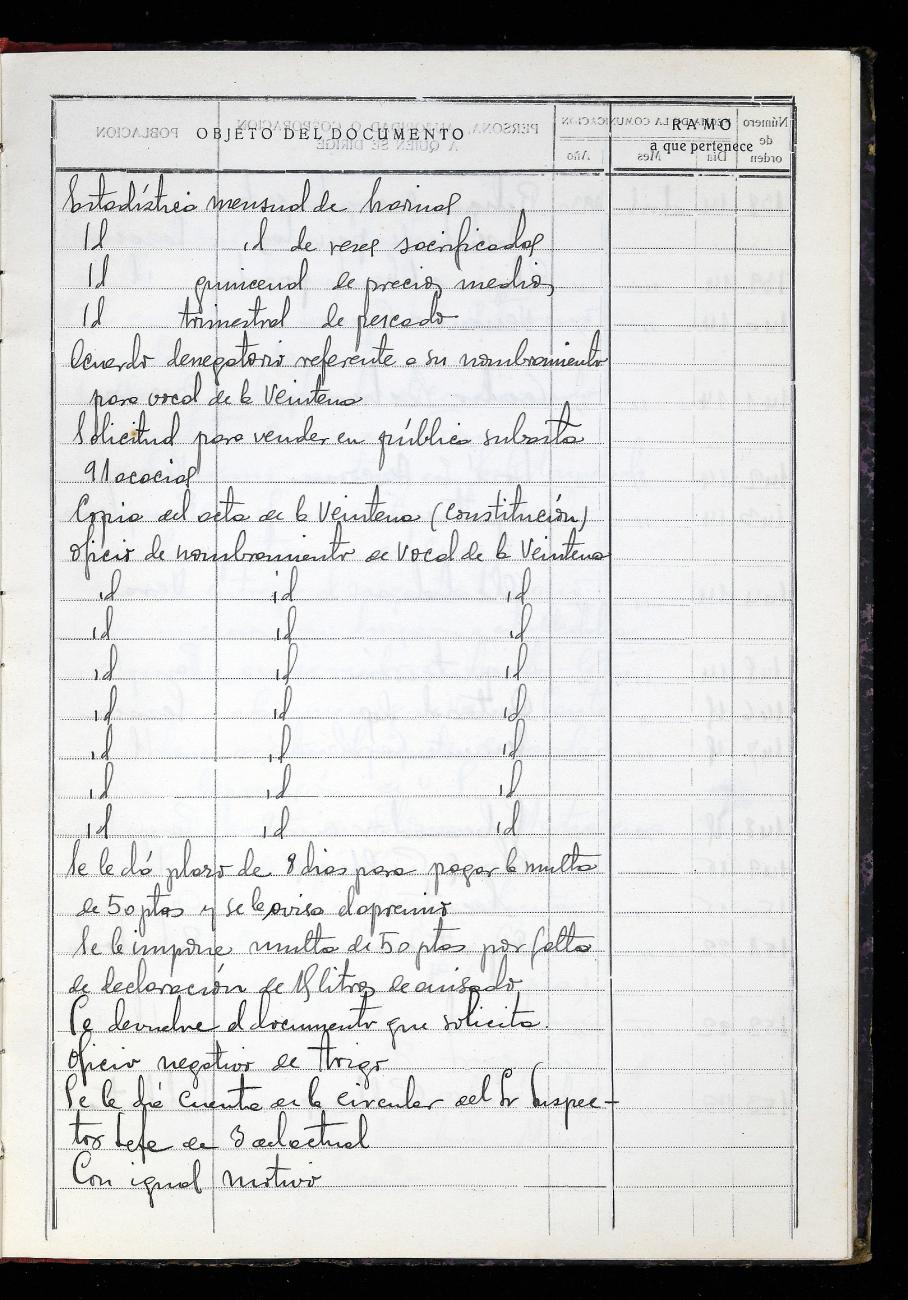 OBJETO DEL DOCUMENTO
RAMO
a que pertenece
Estadística mensual de harinas
Id id de reses sacrificadas
Id quincenal de precios medios
Id trimestral de pescado
Acuerdo denegatorio referente a su nombramiento
para vocal de la Veintena
Solicitud para vender en pública subasta
91 acacias
Copia del acta de la Veintena (Constitución)
Oficio de nombramiento de Vocal de la Veintena
id id id
id id id
id id id
id id id
id id id
id id id
id id id
Se le dá plazo de 8 dias para pagar la multa
de 50 ptas y se le avisa el apremio
Se le impone multa de 50 ptas por falta
de declaración de 18 litros de anisado
Se devuelve el documento que solicita.
Oficio negativo de trigo
Se le dá cuenta de la circular del Sr Inspec-
tor Jefe de 3 del actual
Con igual motivo